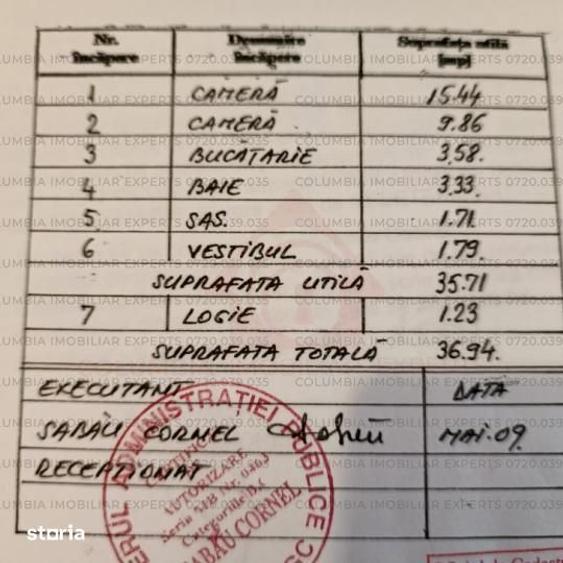 Nr. încăpere Denumire încăpere Suprafața utilă [mp]
1 CAMERĂ 15.44
2 CAMERĂ 9.86
3 BUCĂTĂRIE 3.58.
4 BAIE 3.33.
5 SAS. 1.71
6 VESTIBUL 1.79.
SUPRAFATA UTILĂ 35.71
7 LOGIE 1.23
SUPRAFATA TOTALĂ 36.94.
EXECUTANT DATA
SABĂU CORNEL MAI.09.
RECEPTIONAT
ADMINISTRAȚIEI PUBLICE
AUTORIZARE
Categoria
SABĂU CORNEL
COLUMBIA IMOBILIAR EXPERTS 0720.039.035
storia